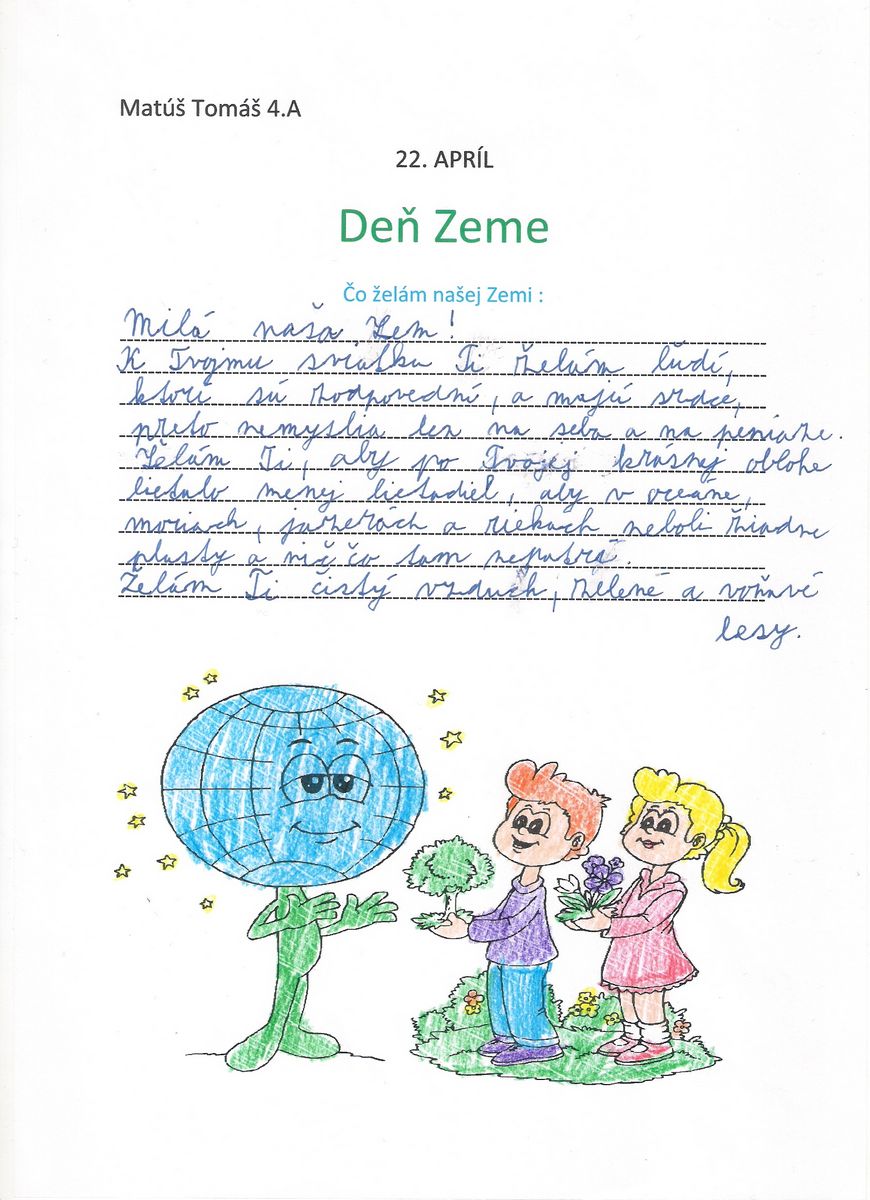 Matúš Tomáš 4.A
22. APRÍL
Deň Zeme
Čo želám našej Zemi :
Milá naša Zem!
K Tvojmu sviatku Ti želám ľudí,
ktorí sú zodpovední, a majú srdce,
preto nemyslia len na seba a na peniaze.
Želám Ti, aby po Tvojej krásnej oblohe
lietalo menej lietadiel, aby v oceáne,
moriach, jazerách a riekach neboli žiadne
plasty a nič čo tam nepatrí.
Želám Ti čistý vzduch, zelené a voňavé
lesy.